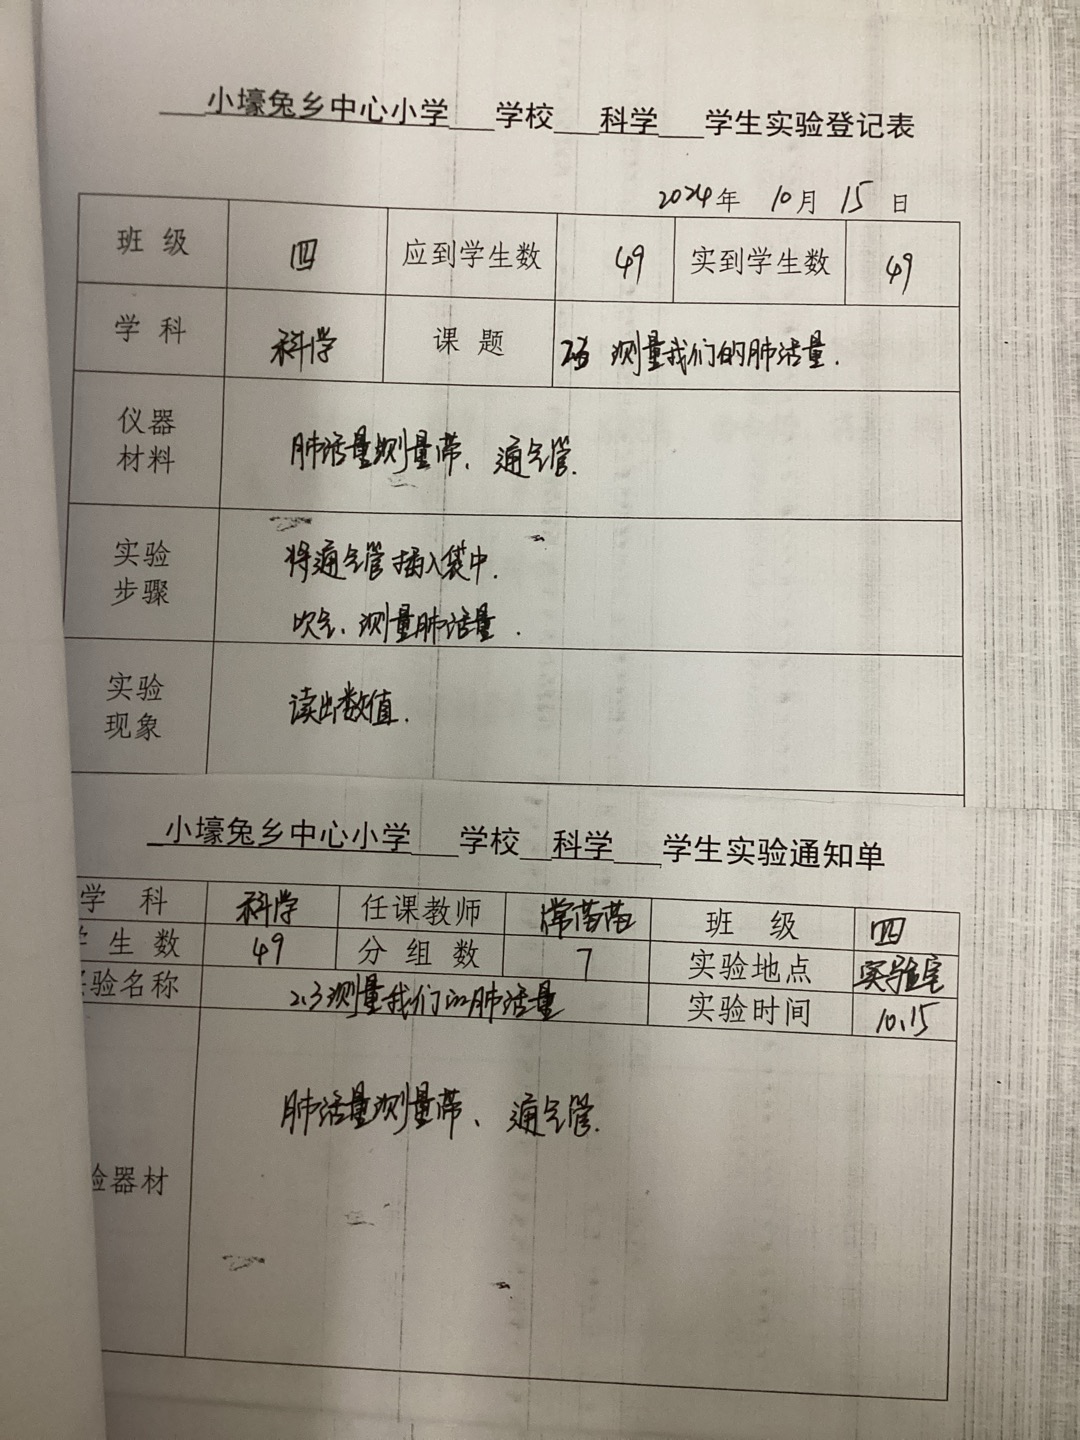 小壕兔乡中心小学 学校 科学 学生实验登记表
2024年 10月 15日
班级 四 应到学生数 49 实到学生数 49
学科 科学 课题 2.3 测量我们的肺活量.
仪器材料 肺活量测量带、通气管.
实验步骤 将通气管插入袋中.
吹气、测量肺活量.
实验现象 读出数值.
小壕兔乡中心小学 学校 科学 学生实验通知单
学科 科学 任课教师 常蓓蓓 班级 四
生数 49 分组数 7 实验地点 实验室
验名称 2.3测量我们的肺活量 实验时间 10.15
验器材 肺活量测量带、通气管.